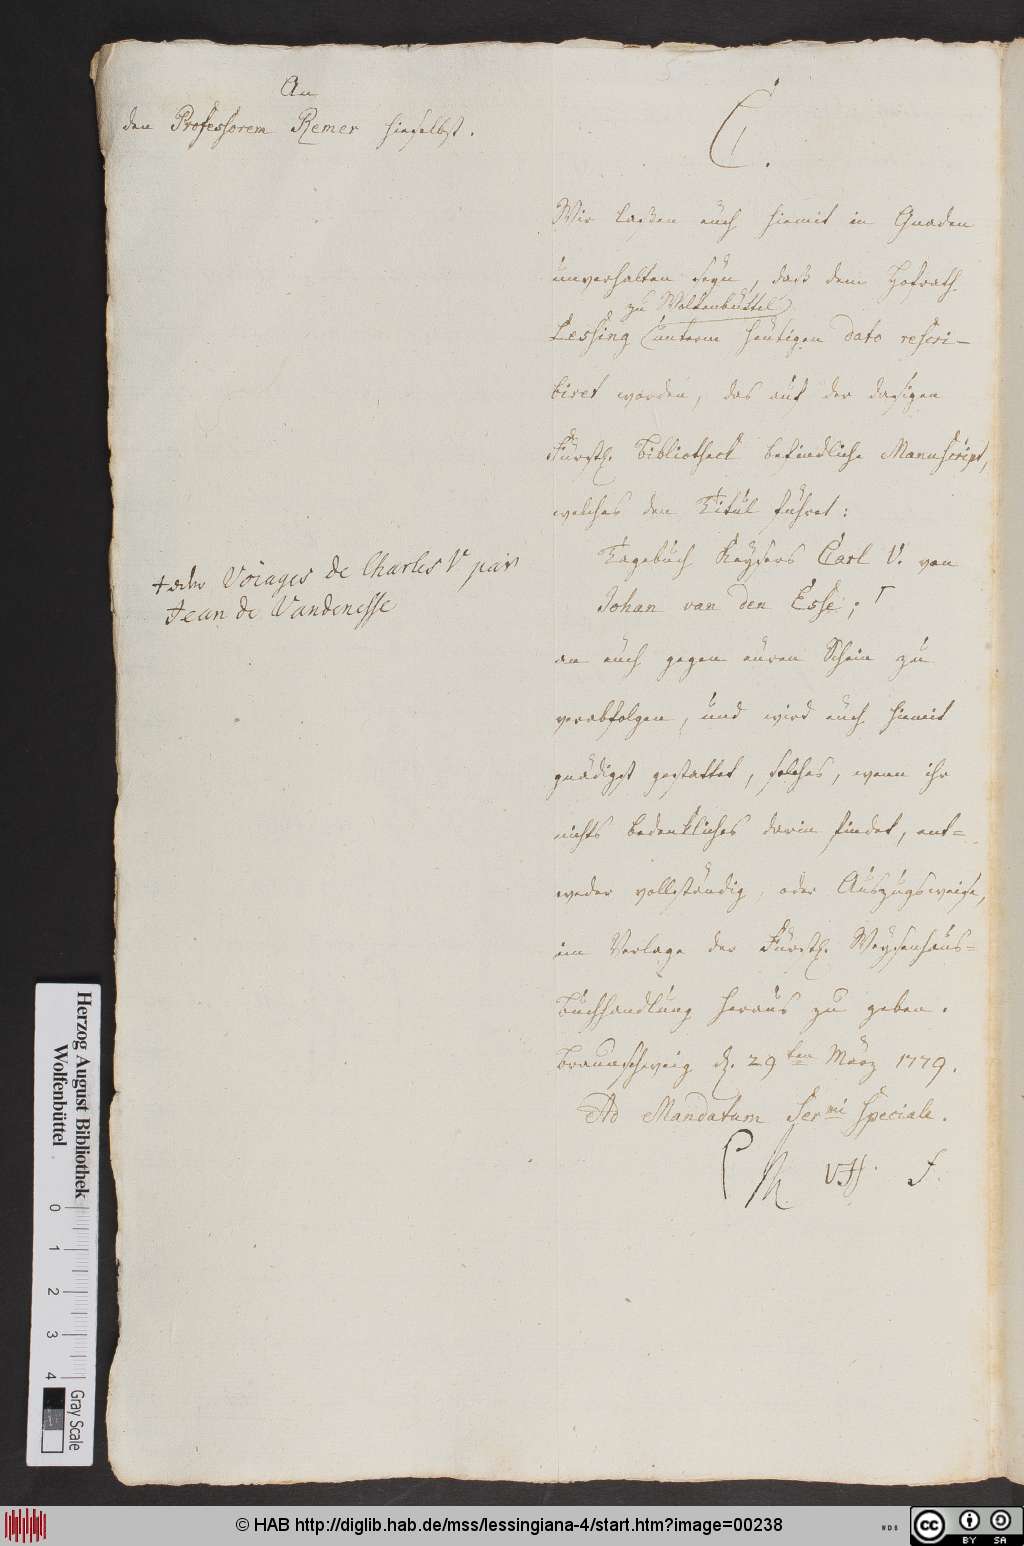 An
den Professorem Remer hieselbst.
C.
Wir laßen euch hiemit in Gnaden
unverhalten seyn, daß dem Hofrath
zu Wolfenbüttel
Lessing unterm heutigen dato rescri-
biret worden, das auf der dasigen
Fürstl. Bibliotheck befindliche Manuscript,
welches den Titul führet:
Tagebuch Kaysers Carl V. von
Johan van den Esse;
† oder Voiages de Charles V par
Jean de Vandenesse
an euch gegen euren Schein zu
verabfolgen, und wird euch hiemit
gnädigst gestattet, solches, wenn ihr
nichts bedenkliches darin findet, ent=
weder vollständig, oder Auszugsweise,
im Verlage der Fürstl. Waysenhaus=
Buchhandlung heraus zu geben.
Braunschweig d. 29ten März 1779.
Ad Mandatum Sermi speciale.
Herzog August Bibliothek
Wolfenbüttel
0 1 2 3 4
Gray Scale
© HAB http://diglib.hab.de/mss/lessingiana-4/start.htm?image=00238
WDB
cc BY SA